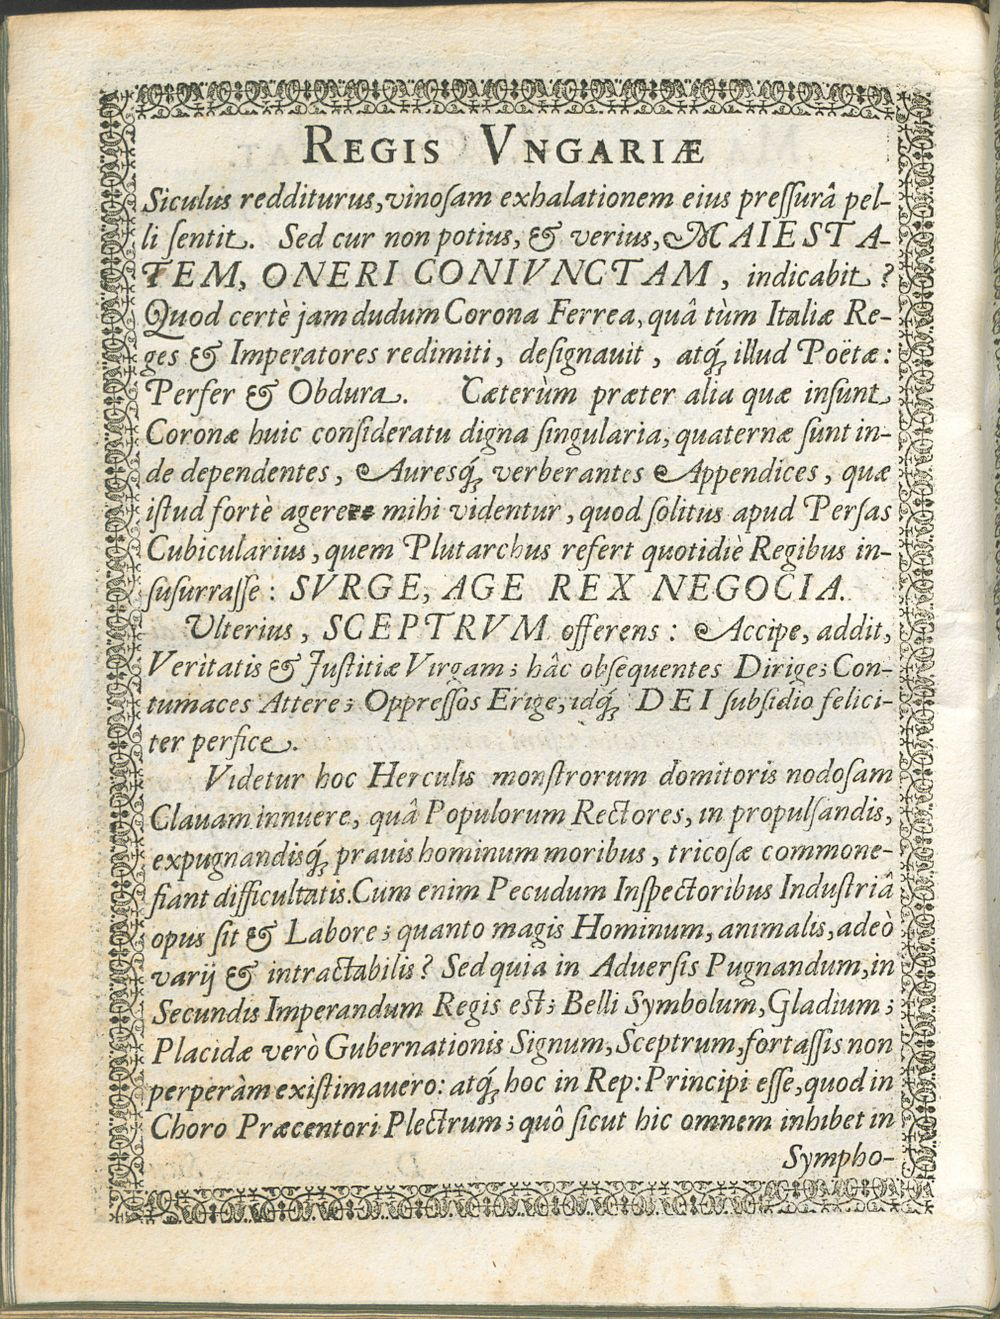 REGIS VNGARIÆ
Siculus redditurus, vinoſam exhalationem eius preſſurâ pel-
li ſentit. Sed cur non potius, & verius, MAIESTA-
TEM, ONERI CONIVNCTAM, indicabit?
Quod certè jam dudum Corona Ferrea, quâ tùm Italiæ Re-
ges & Imperatores redimiti, deſignauit, atq́; illud Poëtæ:
Perfer & Obdura. Cæterùm præter alia quæ inſunt
Coronæ huic conſideratu digna ſingularia, quaternæ ſunt in-
de dependentes, Auresq́; verberantes Appendices, quæ
iſtud fortè agere mihi videntur, quod ſolitus apud Perſas
Cubicularius, quem Plutarchus refert quotidiè Regibus in-
ſuſurraſſe: SVRGE, AGE REX NEGOCIA.
Ulterius, SCEPTRVM offerens: Accipe, addit,
Veritatis & Juſtitiæ Virgam; hâc obſequentes Dirige; Con-
tumaces Attere; Oppreſſos Erige, idq́; DEI ſubſidio felici-
ter perfice.
Videtur hoc Herculis monſtrorum domitoris nodoſam
Clauam innuere, quâ Populorum Rectores, in propulſandis,
expugnandisq́; prauis hominum moribus, tricoſæ commone-
fiant difficultatis. Cum enim Pecudum Inſpectoribus Induſtriâ
opus ſit & Labore; quanto magis Hominum, animalis, adeò
varij & intractabilis? Sed quia in Aduerſis Pugnandum, in
Secundis Imperandum Regis eſt; Belli Symbolum, Gladium;
Placidæ verò Gubernationis Signum, Sceptrum, fortaſſis non
perperàm exiſtimauero: atq́; hoc in Rep: Principi eſſe, quod in
Choro Præcentori Plectrum; quô ſicut hic omnem inhibet in
Sympho-